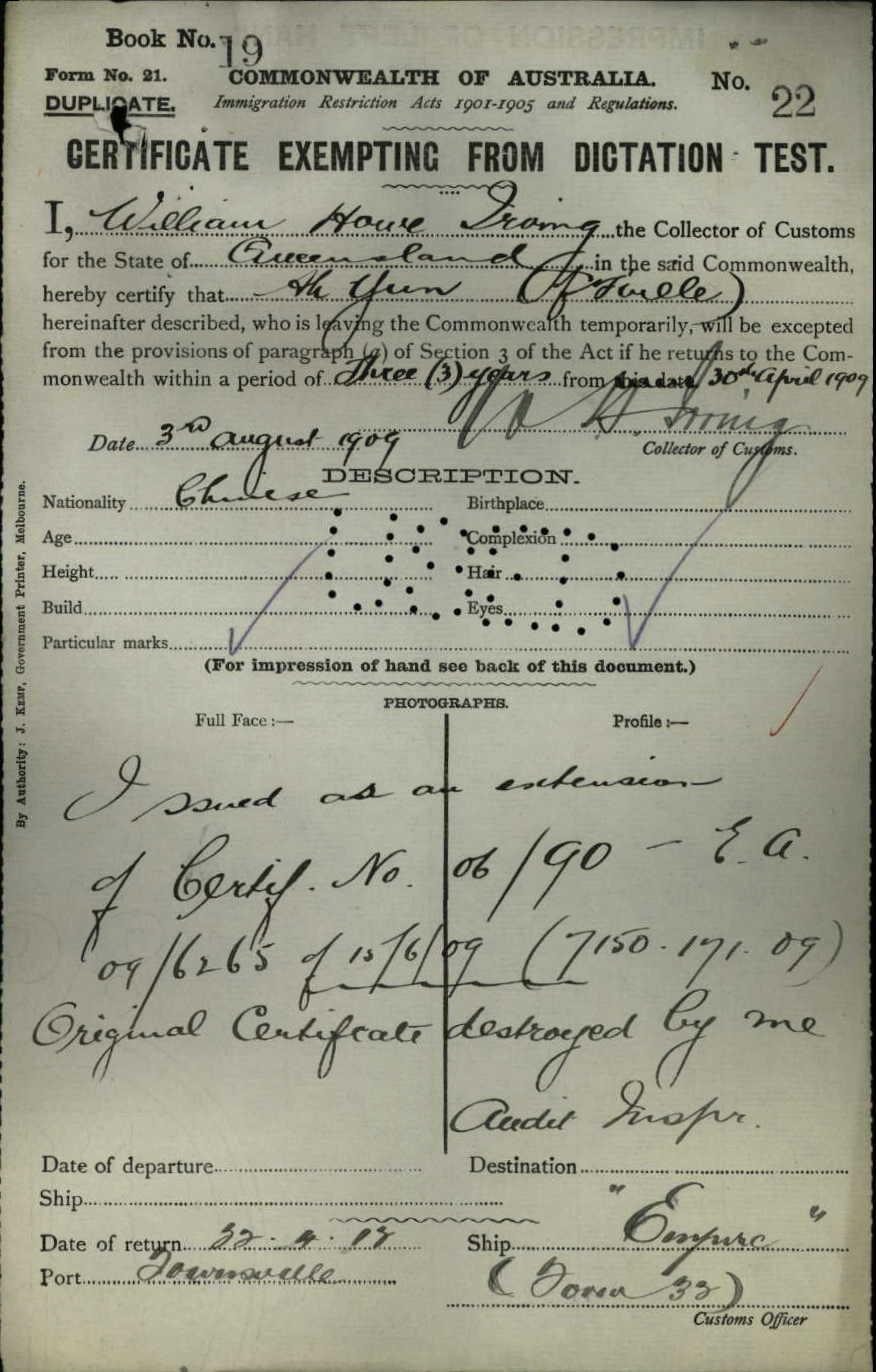 Book No. 19
Form No. 21. COMMONWEALTH OF AUSTRALIA. No. 22
DUPLICATE. Immigration Restriction Acts 1901-1905 and Regulations.
CERTIFICATE EXEMPTING FROM DICTATION TEST.
I, William Howe Irving the Collector of Customs
for the State of Queensland in the said Commonwealth,
hereby certify that Ah Yun (T'ville)
hereinafter described, who is leaving the Commonwealth temporarily, will be excepted
from the provisions of paragraph (a) of Section 3 of the Act if he returns to the Com-
monwealth within a period of Three (3) years from this date 30th April 1909
W H. Irving
Date 3rd august 1909 Collector of Customs.
DESCRIPTION.
Nationality Chinese Birthplace
Age Complexion
Height Hair
Build Eyes
Particular marks
(For impression of hand see back of this document.)
PHOTOGRAPHS.
Full Face :— Profile :—
Issued as an extension
of Certif. No. 06/90 — E. A.
09/6265 of 15/6/09 (7150. 171. 09)
Original Certifcate destroyed by me
Audit Inspr.
Date of departure Destination
Ship
Date of return 22. 4. 12 Ship "Empire"
Port Townsville (Form 32)
Customs Officer
By Authority: J. KEMP, Government Printer, Melbourne.